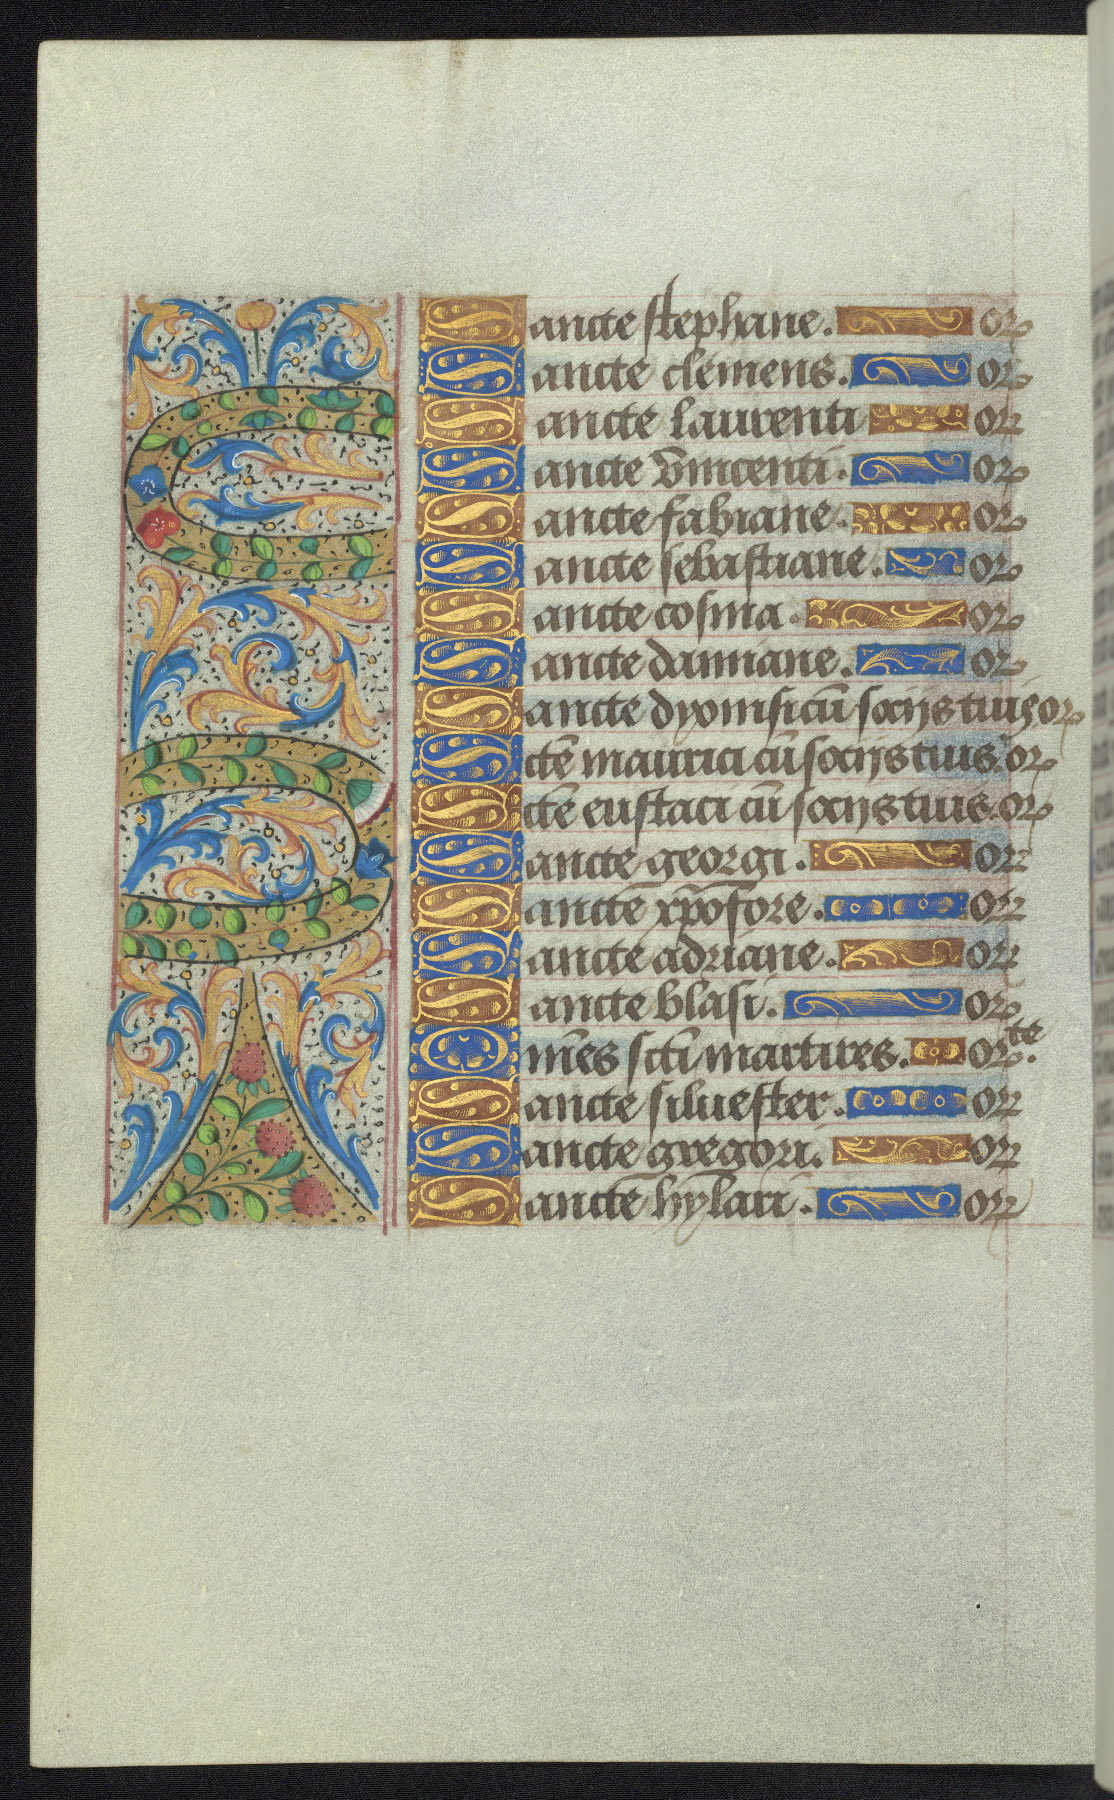 Sancte stephane. or
Sancte clemens. or
Sancte laurenti or
Sancte vincenti. or
Sancte fabiane. or
Sancte sebastiane. or
Sancte cosma. or
Sancte damiane. or
Sancte dyonisi cū socijs tuis or
Sctē maurici cū socijs tuis. or
Sctē eustaci cū socijs tuis. or
Sancte georgi. or
Sancte xpofore. or
Sancte adriane. or
Sancte blasi. or
Omēs scti martires. orte.
Sancte siluester. or
Sancte gregori. or
Sancte hylari. or